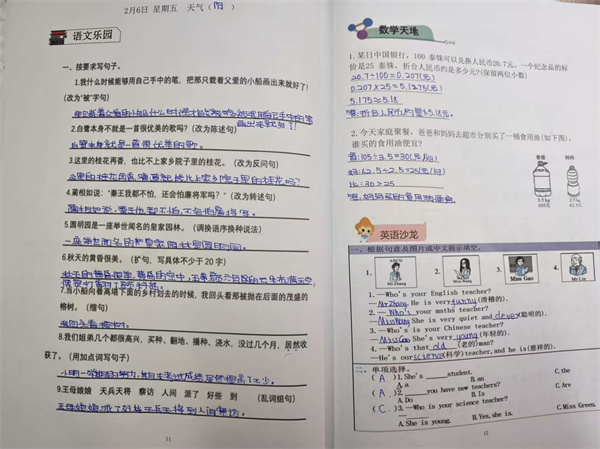 2月6日 星期五 天气(阴)
语文乐园
一、按要求写句子。
1.我什么时候能够用自己手中的笔,把那只载着父爱的小船画出来就好了!
(改为“被”字句)
2.白鹭本身不就是一首很优美的歌吗?(改为陈述句)
白鹭本身就是一首很优美的歌。
3.这里的桂花再香,也比不上家乡院子里的桂花。(改为反问句)
这里的桂花再香,难道就能比上家乡院子里的桂花吗?
4.蔺相如说:“秦王我都不怕,还会怕廉将军吗?”(改为转述句)
蔺相如说,秦王他都不怕,不会怕廉将军。
5.圆明园是一座举世闻名的皇家园林。(调换语序换种说法)
6.秋天的黄昏很美。(扩句,写具体不少于20字)
7.当小船向着高塔下面的乡村划去的时候,我回头看那被抛在后面的茂盛的
榕树。(缩句)
我回头看榕树。
8.我们姐弟几个都很高兴,买种、翻地、播种、浇水,没过几个月,居然收
获了。(用加点词写句子)
9.王母娘娘 天兵天将 察访 人间 派了 好些 到 (乱词组句)
王母娘娘派了好些天兵天将到人间察访。
11
数学天地
1.某日中国银行,100泰铢可以兑换人民币20.7元。一个纪念品的标
价是25泰铢,折合人民币约是多少元?(保留两位小数)
20.7÷100=0.207(元)
0.207×25=5.1275(元)
5.175≈5.18
答:折合人民币约是5.18元。
2.今天家庭聚餐,爸爸和妈妈去超市分别买了一桶食用油(如下图)。
谁买的食用油便宜?
爸:105÷3.5=30(元/kg)
妈:62.5÷2.5=25(元/kg)
比:30>25
答:妈妈买的食用油便宜。
爸爸 妈妈
3.5kg 2.5kg
105元 62.5元
英语沙龙
一、根据句意及图片或中文提示填空。
1. 2. 3. 4.
ABCD
Mr Zhang Miss Wang Miss Gao Mr Lin
1.—Who's your English teacher?
—Mr Zhang. He is very funny(滑稽的).
2.—Who's your maths teacher?
—Miss Wang. She is very quiet and clever(聪明的).
3.—Who is your Chinese teacher?
—Miss Gao. She's very young(年轻的).
4.—Who's that old(老的)man?
—He's our science(科学)teacher, and he is(慈祥的).
二、单项选择。
(A)1.She's ____ student.
A.a B.an C.the
(A)2.____ you have new teachers?
A.Do B.Is C.Are
(C)3.—Who is your science teacher?
A.She is young. B.Yes, she is. C.Miss Green.
12